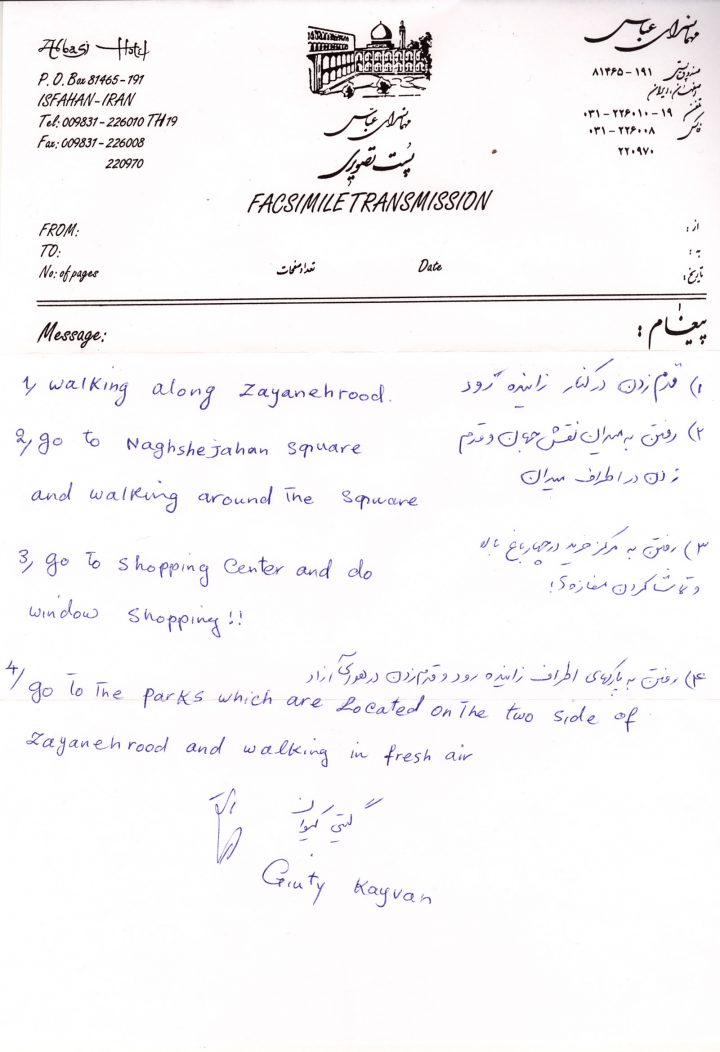 Abbasi Hotel
P. O. Box 81465-191
ISFAHAN-IRAN
Tel: 009831-226010 TH 19
Fax: 009831-226008
220970
مهمانسرای عباسی
صندوق پستی ۸۱۴۶۵-۱۹۱
اصفهان، ایران
تلفن ۰۳۱-۲۲۶۰۱۰-۱۹
فاکس ۰۳۱-۲۲۶۰۰۸
۲۲۰۹۷۰
مهمانسرای عباسی
پست تصویری
FACSIMILE TRANSMISSION
FROM:
از:
TO:
به:
No: of pages
تعداد صفحات
Date
تاریخ:
Message:
پیغام:
1, walking along Zayanehrood.
۱) قدم زدن در کنار زاینده رود
2, go to Naghshejahan square
۲) رفتن به میدان نقش جهان و قدم
and walking around The square
زدن در اطراف میدان
3, go To shopping Center and do
۳) رفتن به مرکز خرید در چهارباغ بالا
window shopping!!
و تماشا کردن مغازه ها!
۴) رفتن به پارکهای اطراف زاینده رود و قدم زدن در هوای آزاد
4/ go To The parks which are Located on The two side of
Zayanehrood and walking in fresh air
گیتی کیوان
Giuty Kayvan